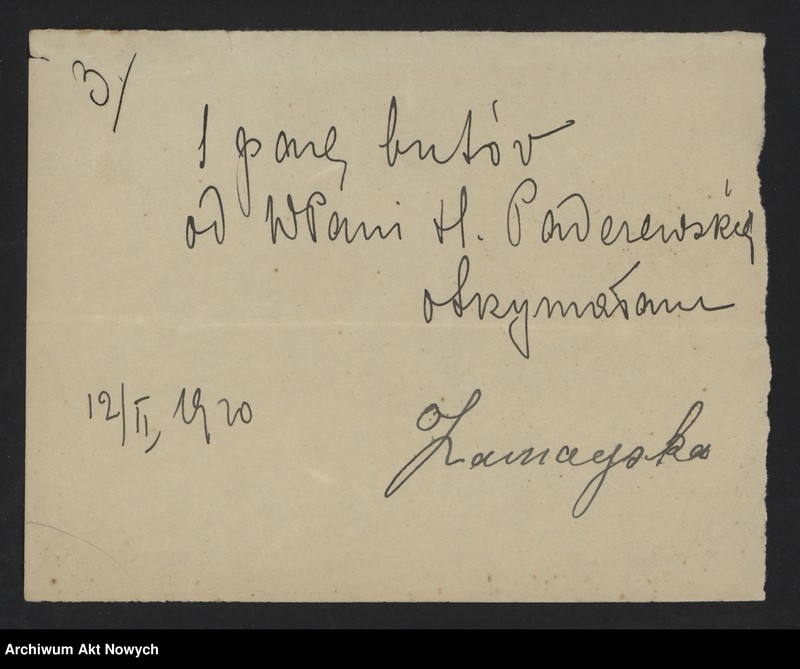 3/
1 parę butów
od WPani H. Paderewskiej
otrzymałam
12/II, 1920
Archiwum Akt Nowych